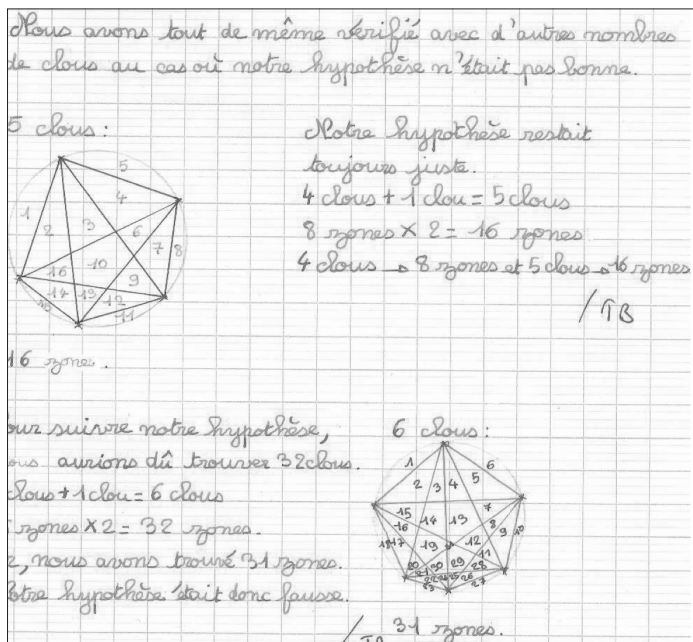 Nous avons tout de même vérifié avec d'autres nombres
de clous au cas où notre hypothèse n'était pas bonne.
5 clous :
1
2
3
4
5
6
7
8
9
10
11
12
13
14
16
16 zones.
Notre hypothèse restait
toujours juste.
4 clous + 1 clou = 5 clous
8 zones × 2 = 16 zones
4 clous → 8 zones et 5 clous → 16 zones
/TB
our suivre notre hypothèse,
ous aurions dû trouver 32 clous.
clous + 1 clou = 6 clous
zones × 2 = 32 zones.
, nous avons trouvé 31 zones.
otre hypothèse était donc fausse.
6 clous :
1
2
3
4
5
6
7
8
9
10
11
12
13
14
15
16
17
18
19
20
21
22
23
24
25
26
27
28
29
30
31 zones.
/TB